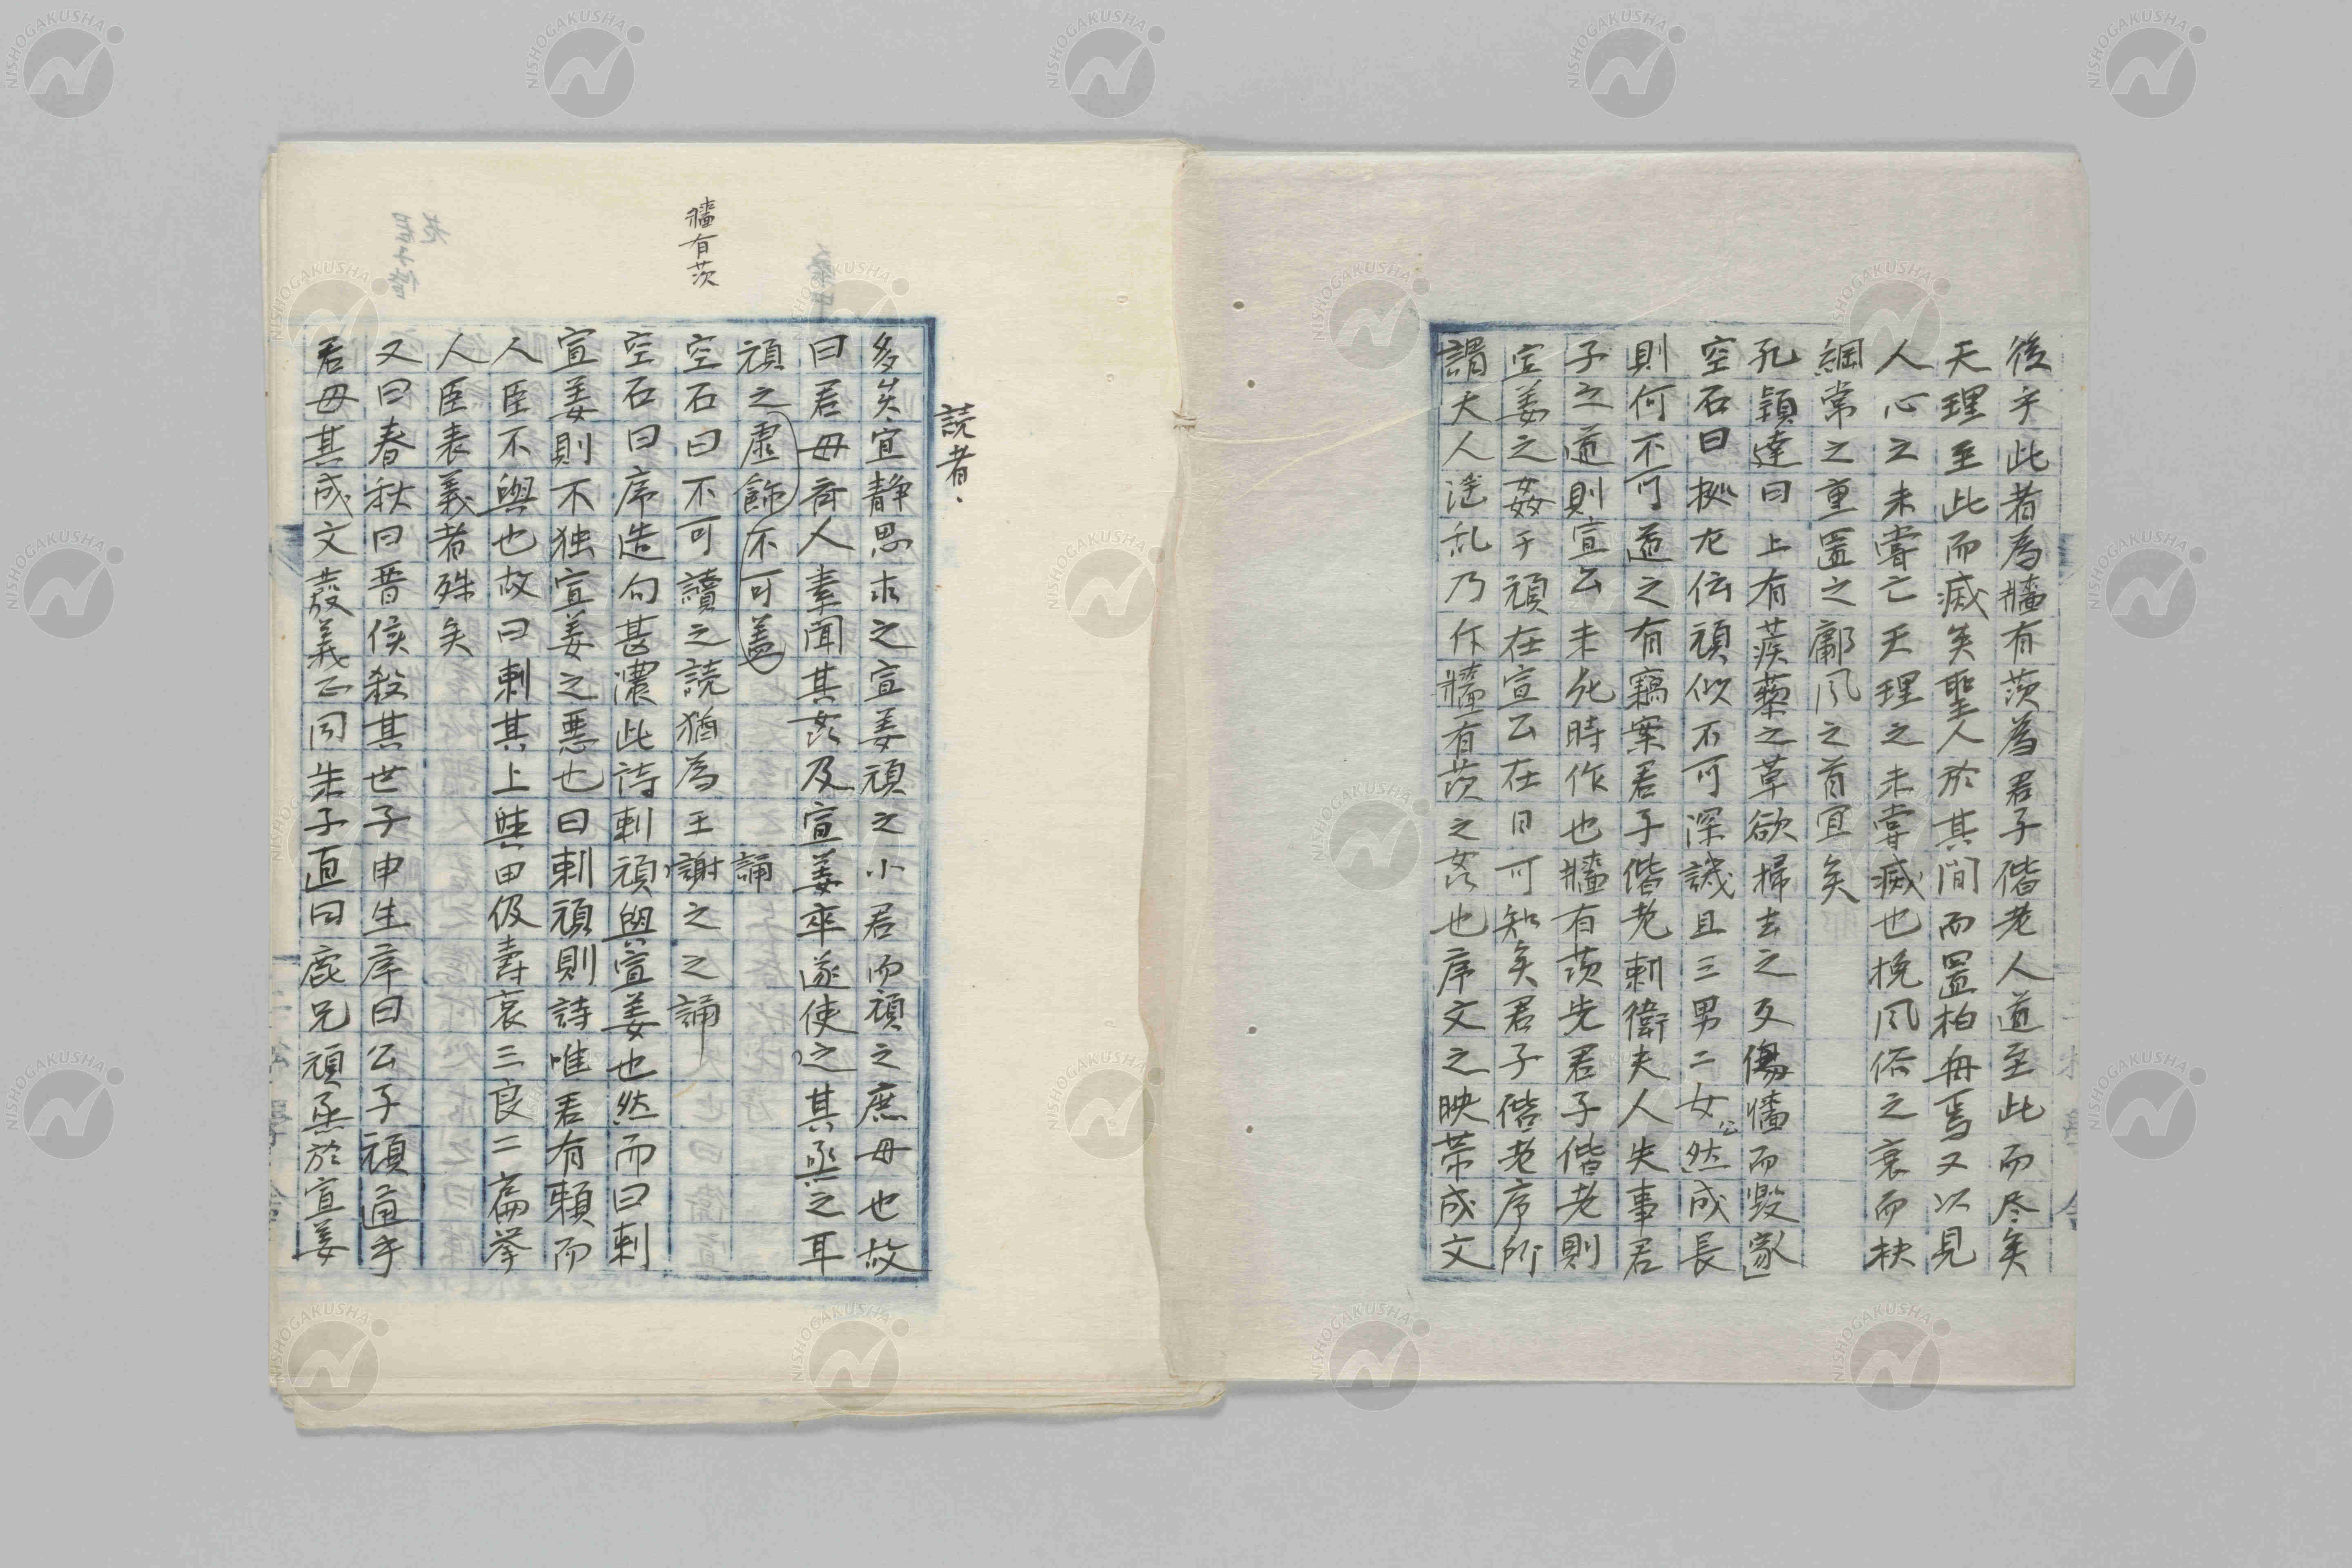 後乎此者為牆有茨為君子偕老人道至此而尽矣
天理至此而滅矣聖人於其間而置柏舟焉又以見
人心之未嘗亡天理之未嘗滅也挽風俗之衰而扶
綱常之重置之鄘風之首宜矣
孔頴達曰上有蒺藜之草欲掃去之反傷牆而毀家」
空石曰拠左伝頑似不可深譏且三男二女然成長
公
則何不可道之有竊案君子偕老刺衛夫人失事君
子之道則宣公未死時作也牆有茨先君子偕老則
宣姜之姦于頑在宣公在日可知矣君子偕老序所
謂夫人淫乱乃作牆有茨之姦也序文之映帯成文
読者・
多矣宜静思求之宣姜頑之小君而頑之庶母也故
曰君母斉人素聞其姦及宣姜卒遂使之其烝之耳
頑之虚飾不可蓋 誦
牆有茨
空石曰不可讀之読猶為王謝之之誦
空石曰序造句甚濃此詩刺頑與宣姜也然而曰刺
宣姜則不独宣姜之悪也曰刺頑則詩唯君有頼而
人臣不與也故曰刺其上與由伋壽哀三良二篇挙
人臣表義者殊矣
又曰春秋曰晋侯殺其世子申生序曰公子頑通乎
君母其成文發義正同朱子直曰庶兄頑烝於宣姜
NISHOGAKUSHA